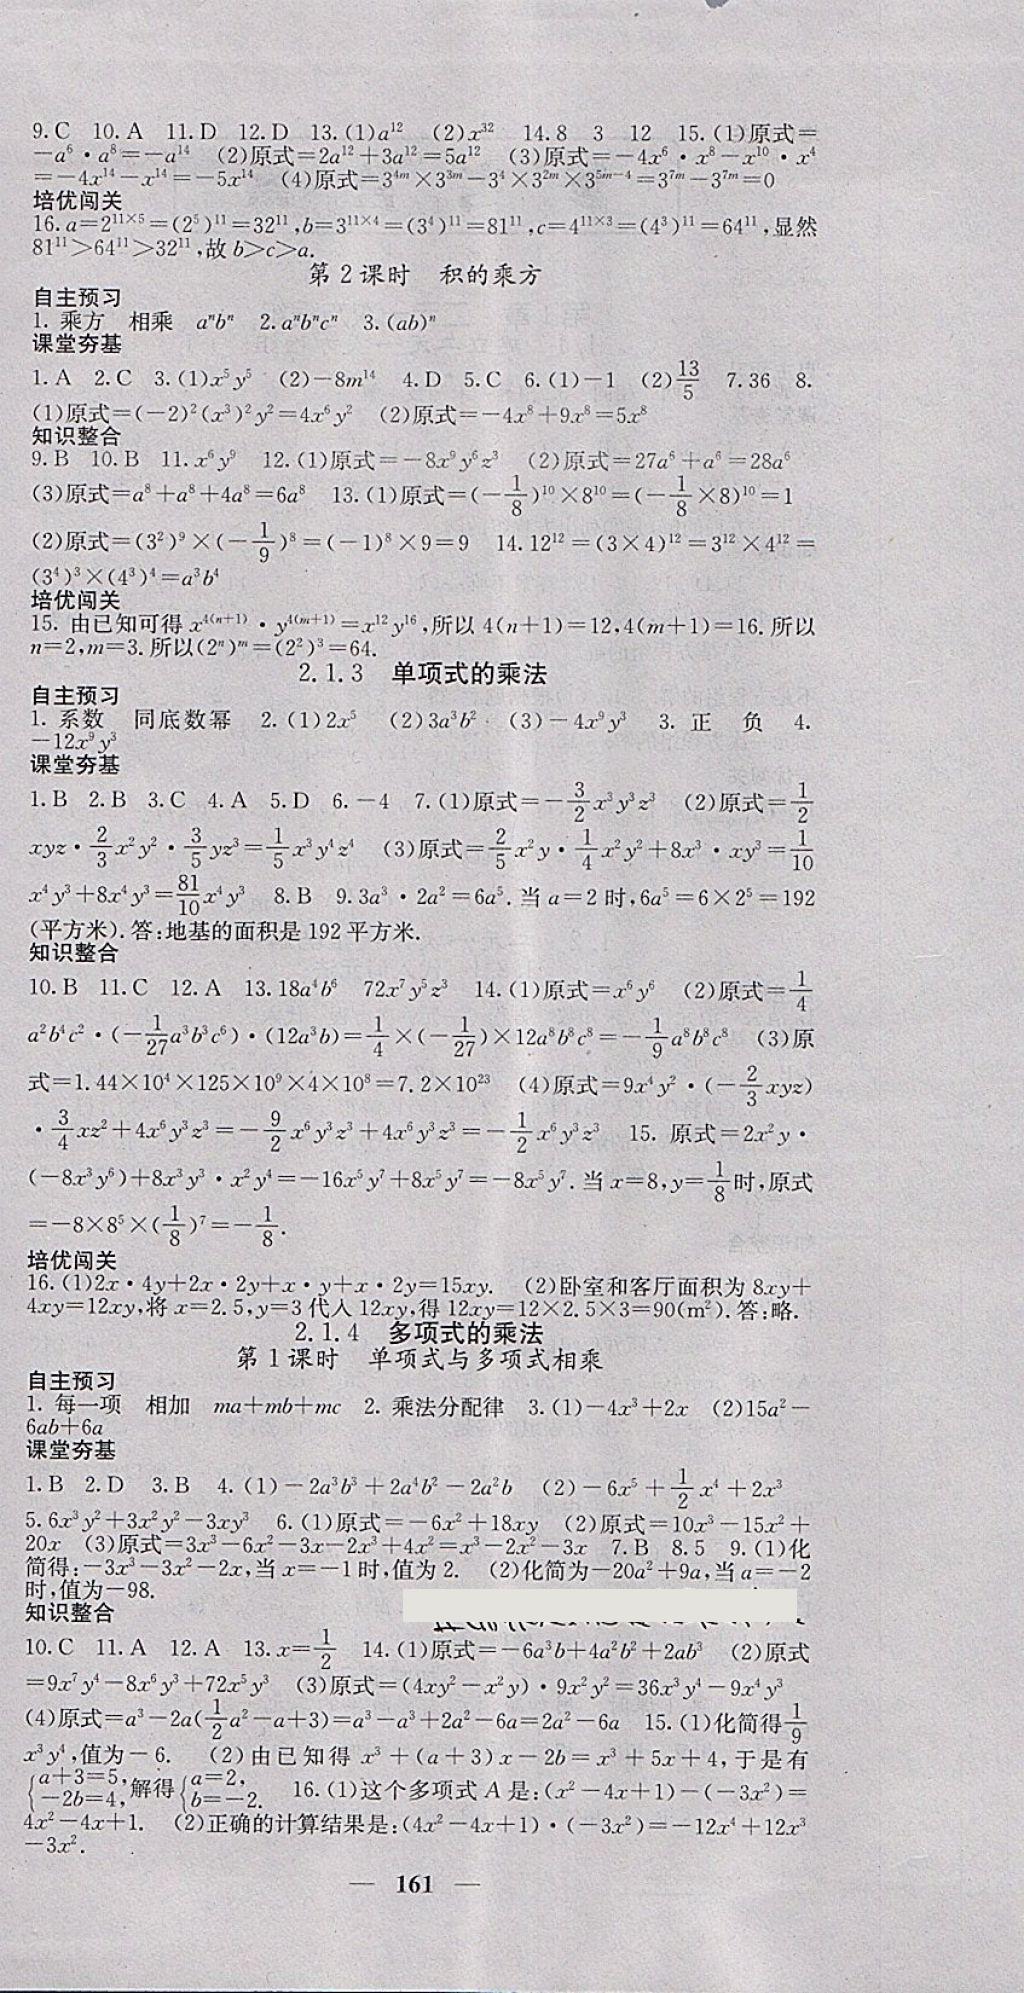 9.C  10.A  11.D  12.D  13.(1)a¹²  (2)x³²  14.8  3  12  15.(1)原式=
-a⁶·a⁸=-a¹⁴  (2)原式=2a¹²+3a¹²=5a¹²  (3)原式=-4x⁶·x⁸-x¹⁰·x⁴
=-4x¹⁴-x¹⁴=-5x¹⁴  (4)原式=3^{4m}×3^{3m}-3⁴×3^{2m}×3^{5m-4}=3^{7m}-3^{7m}=0
培优闯关
16.a=2^{11×5}=(2⁵)¹¹=32¹¹,b=3^{11×4}=(3⁴)¹¹=81¹¹,c=4^{11×3}=(4³)¹¹=64¹¹,显然
81¹¹>64¹¹>32¹¹,故b>c>a.
第2课时  积的乘方
自主预习
1. 乘方  相乘  aⁿbⁿ  2.aⁿbⁿcⁿ  3.(ab)ⁿ
课堂夯基
1.A  2.C  3.(1)x⁵y⁵  (2)-8m¹⁴  4.D  5.C  6.(1)-1  (2)13/5  7.36  8.
(1)原式=(-2)²(x³)²y²=4x⁶y²  (2)原式=-4x⁸+9x⁸=5x⁸
知识整合
9.B  10.B  11.x⁶y⁹  12.(1)原式=-8x⁹y⁶z³  (2)原式=27a⁶+a⁶=28a⁶
(3)原式=a⁸+a⁸+4a⁸=6a⁸  13.(1)原式=(-1/8)¹⁰×8¹⁰=(-1/8×8)¹⁰=1
(2)原式=(3²)⁹×(-1/9)⁸=(-1)⁸×9=9  14.12¹²=(3×4)¹²=3¹²×4¹²=
(3⁴)³×(4³)⁴=a³b⁴
培优闯关
15. 由已知可得x^{4(n+1)}·y^{4(m+1)}=x¹²y¹⁶,所以4(n+1)=12,4(m+1)=16.所以
n=2,m=3.所以(2ⁿ)ᵐ=(2²)³=64.
2.1.3  单项式的乘法
自主预习
1. 系数  同底数幂  2.(1)2x⁵  (2)3a³b²  (3)-4x⁹y³  3. 正  负  4.
-12x⁹y³
课堂夯基
1.B  2.B  3.C  4.A  5.D  6.-4  7.(1)原式=-3/2x³y³z³  (2)原式=1/2
xyz·2/3x²y²·3/5yz³=1/5x³y⁴z⁴  (3)原式=2/5x²y·1/4x²y²+8x³·xy³=1/10
x⁴y³+8x⁴y³=81/10x⁴y³  8.B  9.3a³·2a²=6a⁵.当a=2时,6a⁵=6×2⁵=192
(平方米).答:地基的面积是192平方米.
知识整合
10.B  11.C  12.A  13.18a⁴b⁶  72x⁷y⁵z³  14.(1)原式=x⁶y⁶  (2)原式=1/4
a²b⁴c²·(-1/27a³b³c⁶)·(12a³b)=1/4×(-1/27)×12a⁸b⁸c⁸=-1/9a⁸b⁸c⁸  (3)原
式=1.44×10⁴×125×10⁹×4×10⁸=7.2×10²³  (4)原式=9x⁴y²·(-2/3xyz)
·3/4xz²+4x⁶y³z³=-9/2x⁶y³z³+4x⁶y³z³=-1/2x⁶y³z³  15. 原式=2x²y·
(-8x³y⁶)+8x³y³·x²y⁴=-16x⁵y⁷+8x⁵y⁷=-8x⁵y⁷.当x=8,y=1/8时,原式
=-8×8⁵×(1/8)⁷=-1/8.
培优闯关
16.(1)2x·4y+2x·2y+x·y+x·2y=15xy.  (2)卧室和客厅面积为8xy+
4xy=12xy,将x=2.5,y=3代入12xy,得12xy=12×2.5×3=90(m²).答:略.
2.1.4  多项式的乘法
第1课时  单项式与多项式相乘
自主预习
1. 每一项  相加  ma+mb+mc  2. 乘法分配律  3.(1)-4x³+2x  (2)15a²-
6ab+6a
课堂夯基
1.B  2.D  3.B  4.(1)-2a³b³+2a⁴b²-2a²b  (2)-6x⁵+1/2x⁴+2x³
5.6x³y²+3x²y²-3xy³  6.(1)原式=-6x²+18xy  (2)原式=10x³-15x²+
20x  (3)原式=3x³-6x²-3x-2x³+4x²=x³-2x²-3x  7.B  8.5  9.(1)化
简得:-3x³-3x²-2x,当x=-1时,值为2.  (2)化简为-20a²+9a,当a=-2
时,值为-98.
知识整合
10.C  11.A  12.A  13.x=1/2  14.(1)原式=-6a³b+4a²b²+2ab³  (2)原式
=9x⁷y⁴-8x⁶y³+72x⁵y³  (3)原式=(4xy²-x²y)·9x²y²=36x³y⁴-9x⁴y³
(4)原式=a³-2a(1/2a²-a+3)=a³-a³+2a²-6a=2a²-6a  15.(1)化简得1/9
x³y⁴,值为-6.  (2)由已知得x³+(a+3)x-2b=x³+5x+4,于是有
{a+3=5, -2b=4,解得{a=2, b=-2.  16.(1)这个多项式A是:(x²-4x+1)-(-3x²)=
4x²-4x+1.  (2)正确的计算结果是:(4x²-4x+1)·(-3x²)=-12x⁴+12x³
-3x².
— 161 —